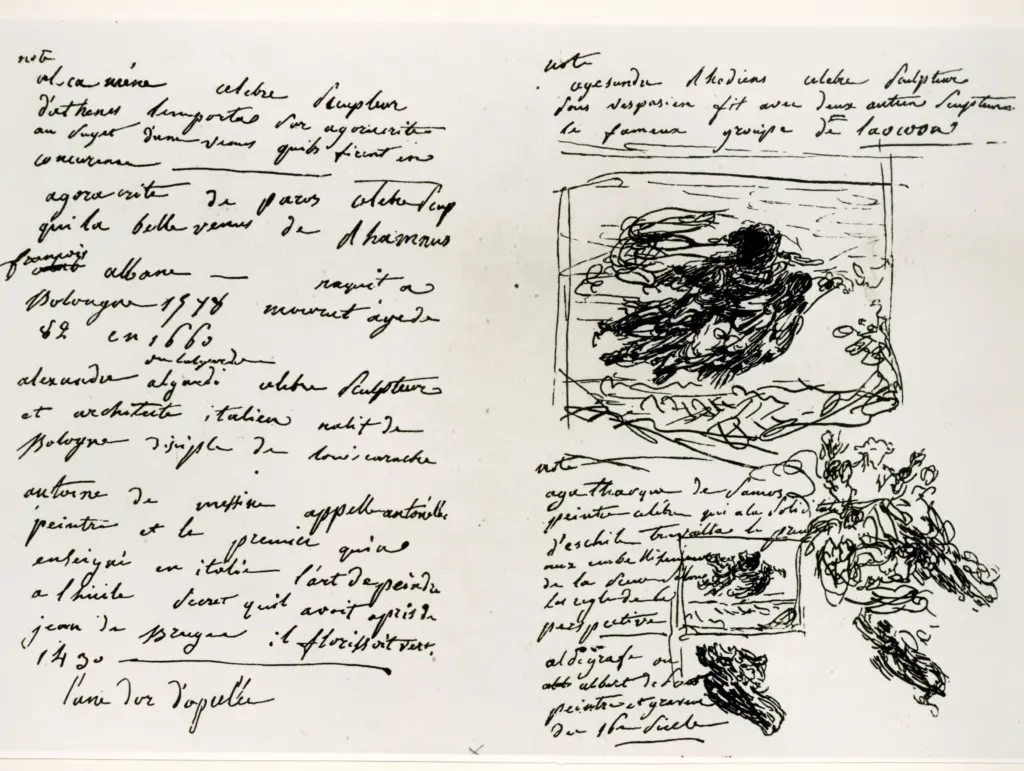 note
alcamène celebre Sculpteur
d'athenes l'emporta sur agoracrite
au Sujet d'une venus quils firent en
concurence
agoracrite de paros celebre Sculp
qui la belle venus de Rhamnus
françois albane — naquit a
Bolongne 1578 mourut âgé de
82 en 1660
alexandre algardi celebre Sculpteur
et architecte italien natif de
Bologne disiple de louis carache
antoine de messine appelle antonello
peintre et le premier qui a
enseigné en italie l'art de peindre
a l'huile Secret quil avoit apris de
jean de Bruge il florissoit vers
1430
l'ane d'or d'apulée
note
agesandre Rhodiens celebre Sculpteur
Sous vespasien fit avec deux autres Sculpteurs
le fameux groupe de laocoon
note
agatharque de Samos
peintre celebre qui a la Solicitation
d'eschile travailla le premier
aux embellissements
de la Scene Selon
les regle de la
perspective
aldegrafe ou
albert de
peintre et graveur
du 16e Siecle